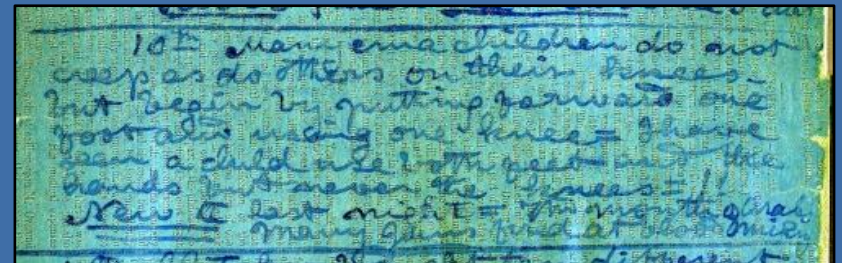 10th Manyema children do not
creep as do others on their knees
but begin by putting forward one
foot and using one knee = I have
seen a child use both feet and the
hands but never the knees = !!
New last night = The month
Many
different